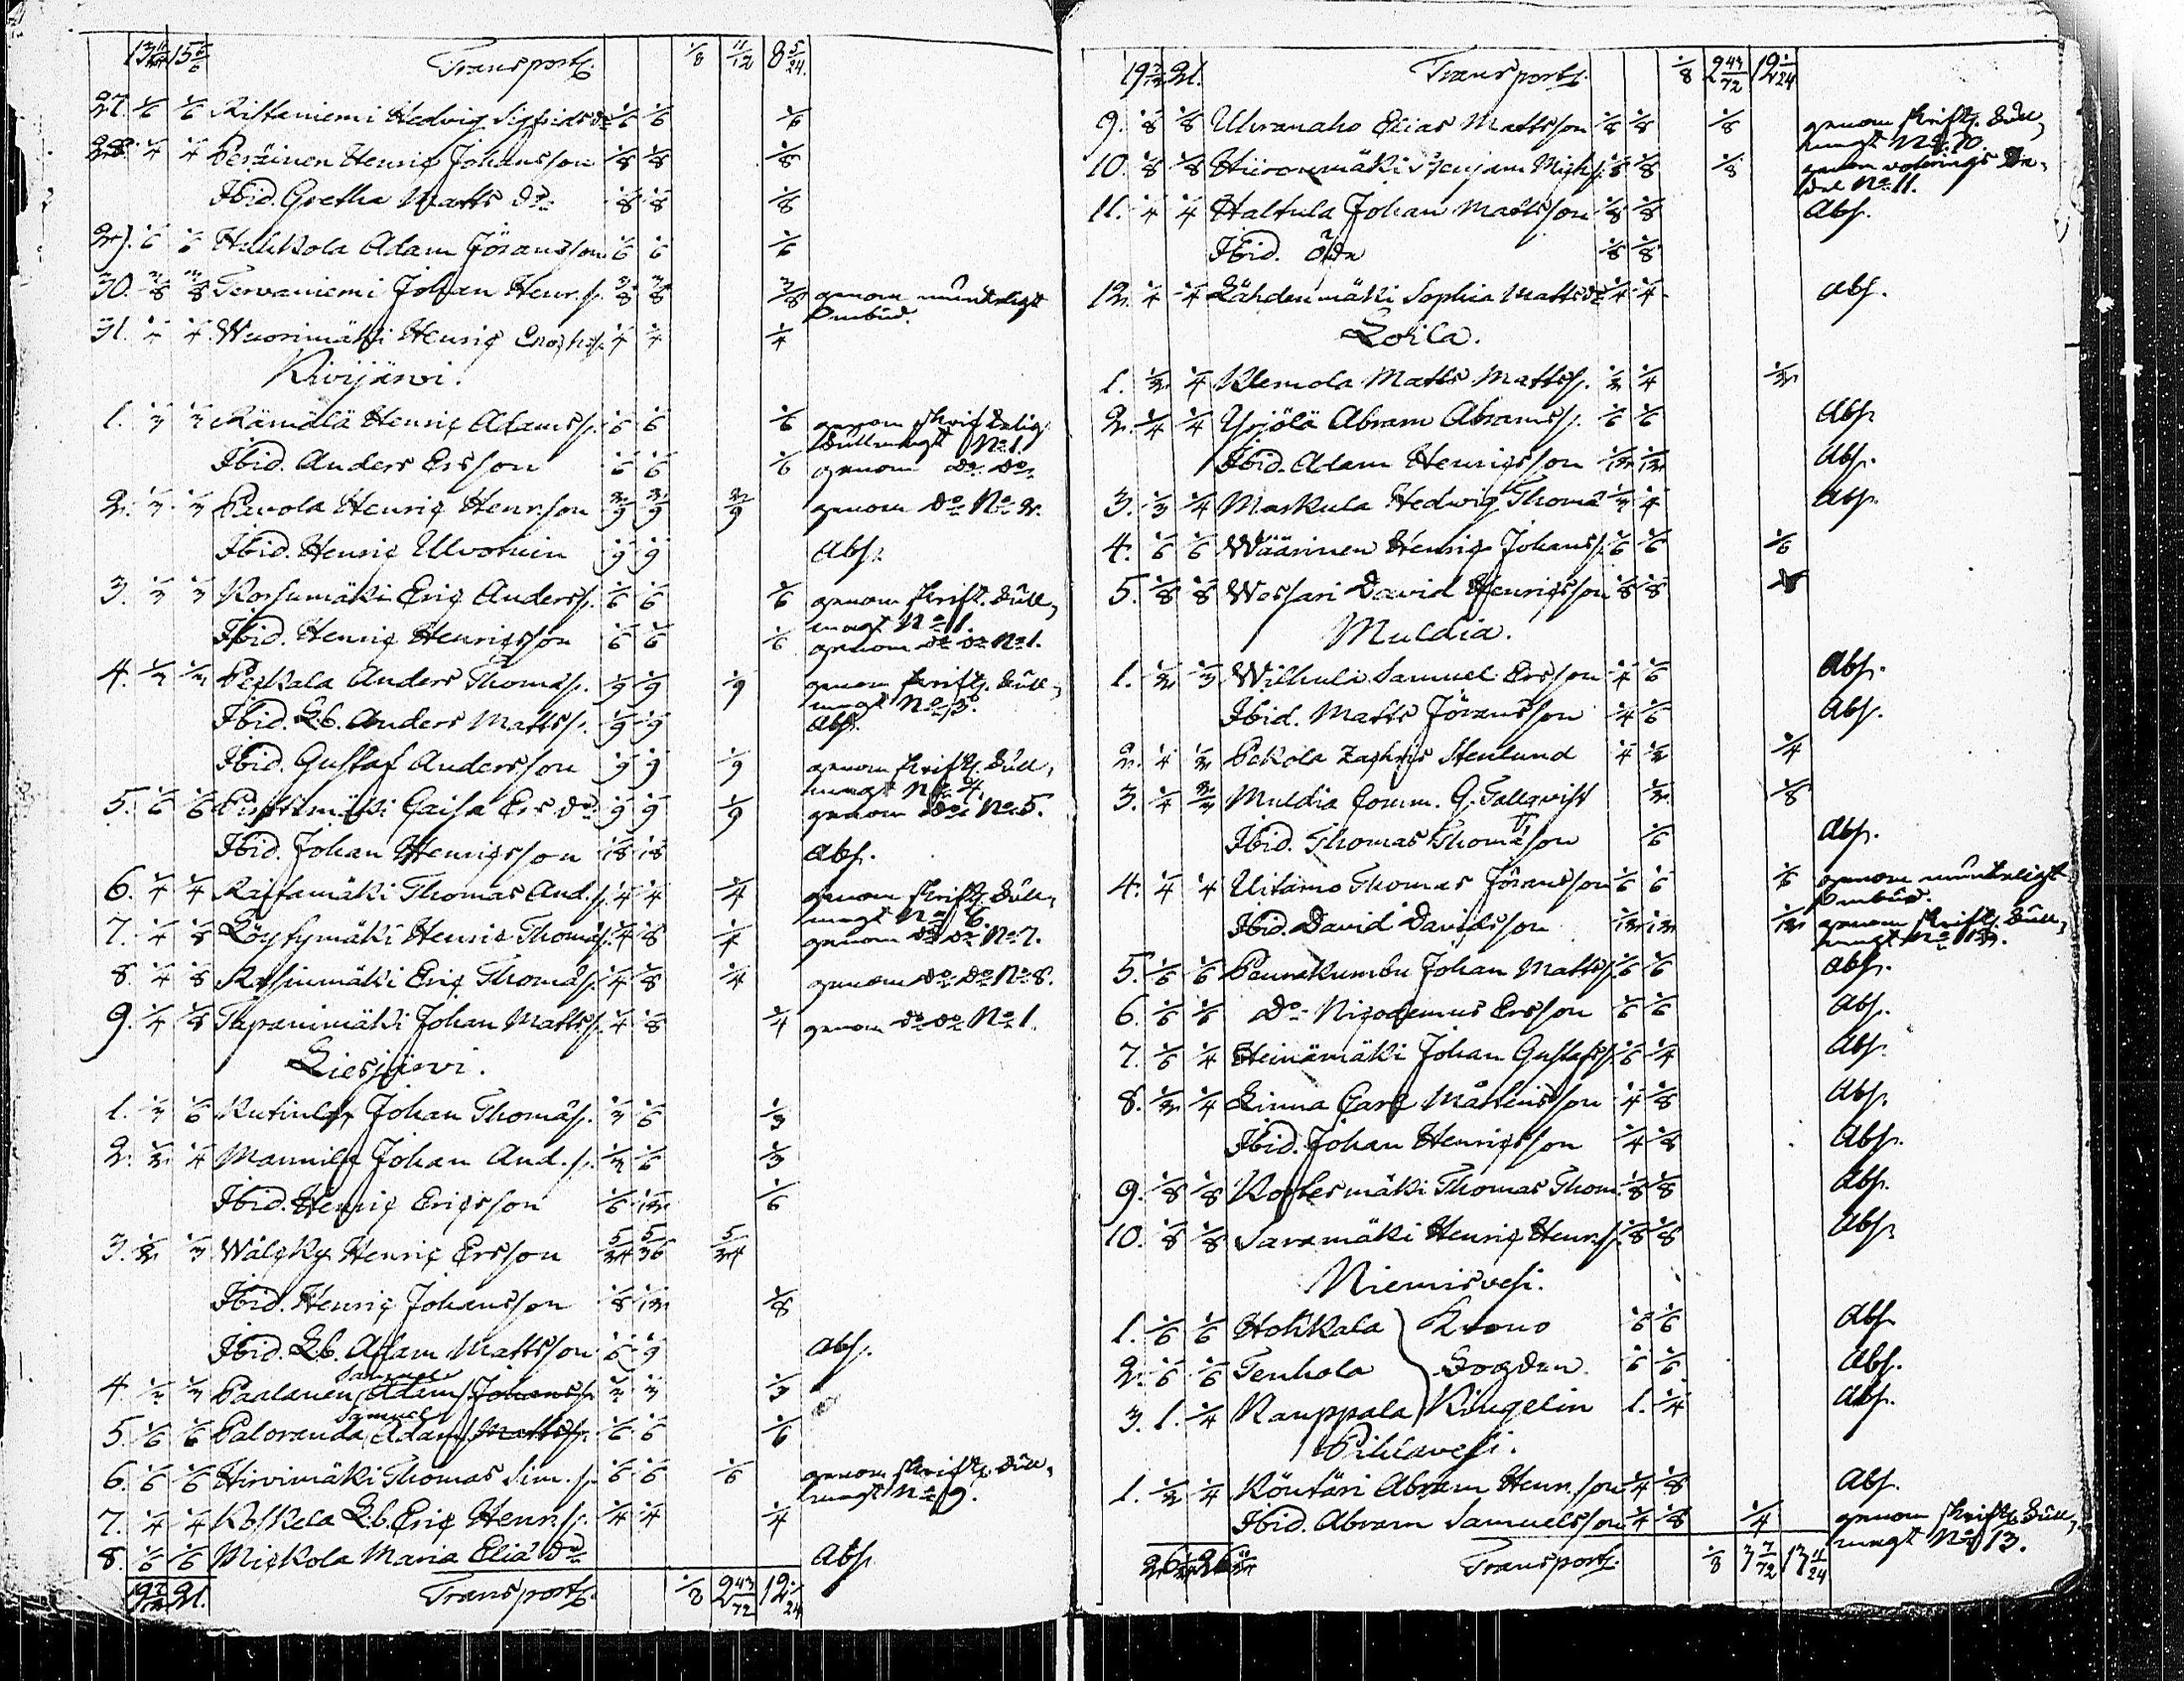 Transport
1/8 11/12 8 5/24
27. 1/6 1/6 Ristaniemi Hedvig Sigfrids dr 1/6 1/6 1/6
28. 1/4 1/4 Peräinen Henric Johansson 1/8 1/8 1/8
Ibid. Gretha Matts dr 1/8 1/8 1/8
29. 1/6 1/6 Hakkola Adam Jöransson 1/6 1/6 1/6
30. 3/8 3/8 Tervaniemi Johan Henr.s. 3/8 3/8 3/8 genom muntligt
Ombud.
31. 1/4 1/4 Wuorimäki Henric 1/4 1/4 1/4
Kivijärvi.
1. 1/3 1/3 Rämälä Henric Adamss. 1/6 1/6 1/6 genom skriftelig
Fullmagt No 1.
Ibid. Anders Ersson 1/6 1/6 1/6 genom do do
2. 1/3 1/3 Pavola Henric Henr.son 2/9 2/9 2/9 genom do No 2.
Ibid. Henric Ulvotuin 1/9 1/9 Abs.
3. 1/3 1/3 Korsumäki Eric Anderss. 1/6 1/6 1/6 genom skrift. Full,
magt No 1.
Ibid. Henric Henricsson 1/6 1/6 1/6 genom do do No 1.
4. 1/3 1/3 Peckala Anders Thomas. 1/9 1/9 1/9 genom skriftl. Full,
magt No 3.
Ibid. L.b. Anders Mattss. 1/9 1/9 Abs.
Ibid. Gustaf Andersson 1/9 1/9 1/9 genom skriftl. Full,
magt No 4.
5. 1/6 1/6 Caisa Ers dr 1/9 1/9 1/9 genom do No 5.
Ibid. Johan Henricsson 1/18 1/18 Abs.
6. 1/4 1/4 Raittamäki Thomas And.s. 1/4 1/4 1/4 genom skriftl. Full,
magt No 6.
7. 1/4 1/8 Löytymäki Henric Thomas. 1/4 1/8 1/4 genom do do No 7.
8. 1/4 1/8 Rossinmäki Eric Thomas. 1/4 1/8 1/4 genom do do No 8.
9. 1/4 1/8 Tapanimäki Johan Mattss. 1/4 1/8 1/4 genom do do No 1.
Liesjärvi.
1. 1/3 1/6 Kutinlax Johan Thomas. 1/3 1/6 1/3
2. 1/2 1/4 Mannila Johan And.s. 1/3 1/6 1/3
Ibid. Henric Ericsson 1/6 1/12 1/6
3. 1/2 1/3 Wälcky Henric Ersson 5/24 5/36 5/24
Ibid. Henric Johansson 1/8 1/12 1/8
Ibid. L.b. Adam Mattsson 1/6 1/9 Abs.
Samuel
4. 1/3 1/3 Paalanen Adam Johanss. 1/3 1/3 1/3
Samuel
5. 1/6 1/6 Paloranda Adam Mattss. 1/6 1/6 1/6
6. 1/6 1/6 Hirvimäki Thomas Sim.s. 1/6 1/6 1/6 genom skriftl. Full,
magt No 9.
7. 1/4 1/4 Koskela L.b. Eric Henr.s. 1/4 1/4 1/4
8. 1/6 1/6 Mickola Maria Elia dr Abs.
21. Transport 1/8 2 43/72 12 1/24
21. Transport 1/8 2 43/72 12 1/24
9. 1/8 1/8 Uhranaho Elias Mattsson 1/8 1/8 1/8 genom skriftl. Full,
magt No 10.
10. 1/8 1/8 Hiironmäki Benjam. Mich.s. 1/8 1/8 1/8 genom voterings Se,
del No 11.
11. 1/4 1/4 Haltula Johan Mattsson 1/8 1/8 Abs.
Ibid. öde 1/8 1/8
12. 1/4 1/4 Lähdenmäki Sophia Matts dr 1/4 1/4 Abs.
Loila.
1. 1/2 1/4 Klemola Matts Mattss. 1/2 1/4 1/2
2. 1/4 1/4 Yrjölä Abram Abramss. 1/6 1/6 Abs.
Ibid. Adam Henricsson 1/12 1/12 Abs.
3. 1/3 1/4 Maskula Hedwig Thoma 1/3 1/4 Abs.
4. 1/6 1/6 Wäärinen Henric Johanss. 1/6 1/6 1/6
5. 1/8 1/8 Wessari David Henricsson 1/8 1/8 1/8
Muldia.
1. 1/2 1/3 Wilhuli Samuel Ersson 1/4 1/6 Abs.
Ibid. Matts Jöransson 1/4 1/6 Abs.
2. 1/4 1/2 Pekola Zachris Stenlund 1/4 1/2 1/4
3. 1/4 2/3 Muldia Comm. G. Tallqvist 1/2 1/8
Ibid. Thomas Thomasson 1/6 Abs.
4. 1/4 1/4 Uitamo Thomas Jöransson 1/6 1/6 1/6 genom muntligt
Ombud.
Ibid. David Davidsson 1/12 1/12 1/12 genom skriftl. Full,
magt No 12.
5. 1/6 1/6 Paunakumbu Johan Mattss. 1/6 1/6 Abs.
6. 1/6 1/6 do Nicodemus Ersson 1/6 1/6 Abs.
7. 1/6 1/4 Heinämäki Johan Gustafss. 1/6 1/4 Abs.
8. 1/2 1/4 Linna Carl Mattsson 1/4 1/8 Abs.
Ibid. Johan Henricsson 1/4 1/8 Abs.
9. 1/8 1/8 Thomas Thom. 1/8 1/8 Abs.
10. 1/8 1/8 Saramäki Henric Henr.s. 1/8 1/8 Abs.
Niemisvesi.
1. 1/6 1/6 Hokkala Krono 1/6 1/6 Abs.
2. 1/6 1/6 Tenhola Fogden 1/6 1/6 Abs.
3. 1. 1/4 Kauppala Ringelin 1. 1/4 Abs.
Pihlavesi.
1. 1/2 1/4 Köntäri Abram Henr.son 1/4 1/8 Abs.
Ibid. Abram Samuelsson 1/4 1/8 1/4 genom skriftl. Full,
magt No 13.
Transport 1/8 3 7/72 13 11/24